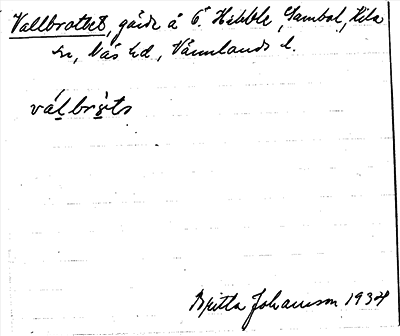 Vallbrottet, gärde å Ö. Häbble, Gambol, Kila
sn, Näs hd, Värmlands l.
válbròts
Britta Johansson 1934